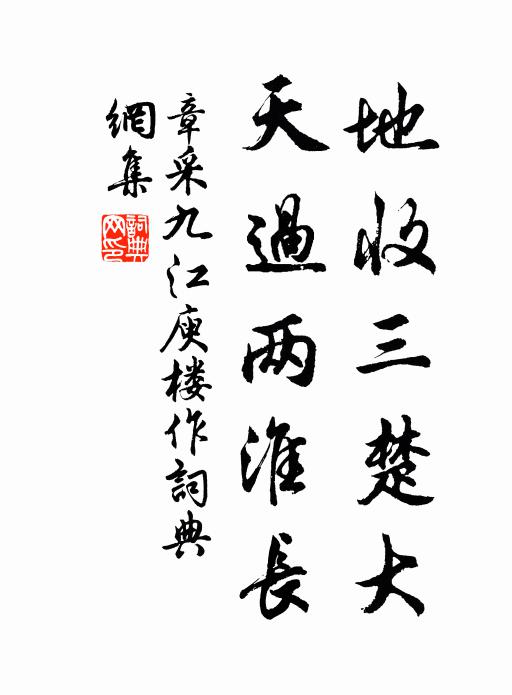 地收三楚大
天過两淮長
章采九江庾楼作詞典
網集
詞典
网印